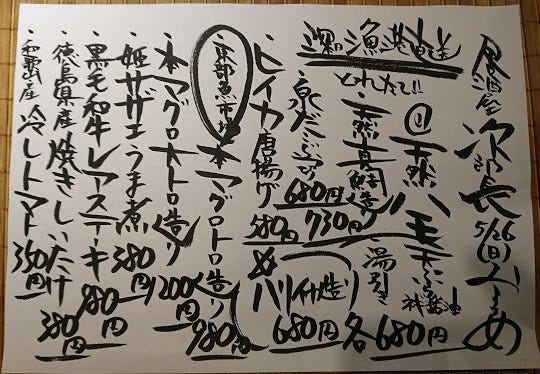 居酒屋 次郎長 5/26(日)おすすめ
①天然ハモ 天ぷら 湯引き 各680円
深日漁港直送
とれたて!!
天然真鯛造り 730円
泉だこぶつ切り 680円
ハリイカ造り 680円
・ヒイカ唐揚げ 580円
京都魚市場
・本マグロトロ造り 980円
・本マグロ大トロ造り 1200円
・姫サザエうま煮 380円
・黒毛和牛レアステーキ 980円
・徳島県産 焼きしいたけ 380円
・和歌山産 冷しトマト 350円